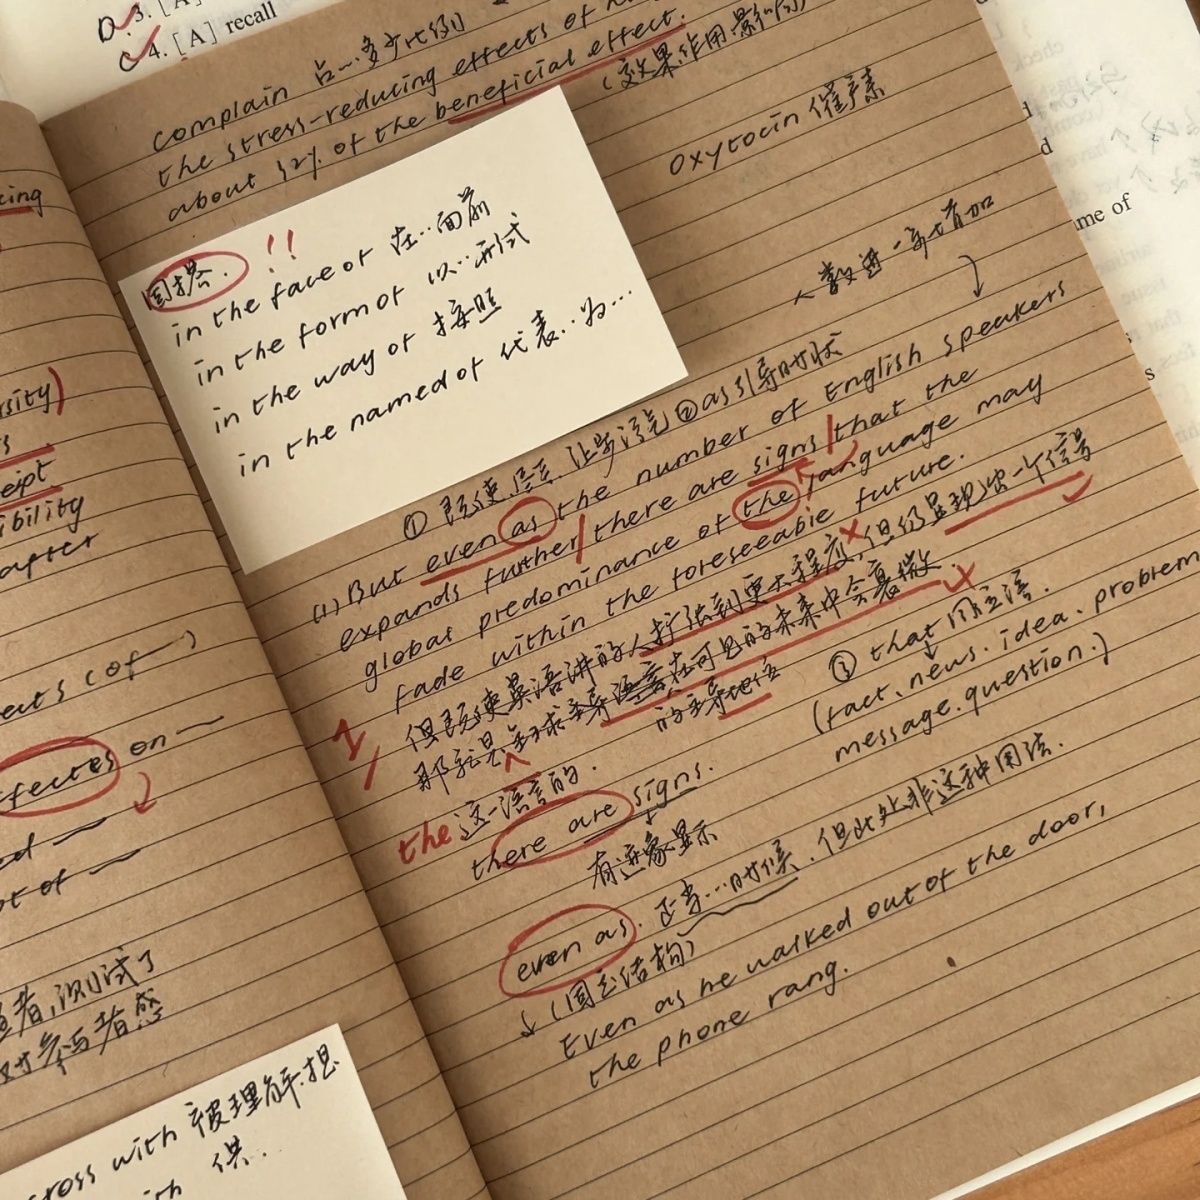 D.3. [A]
C4. [A] recall
complain 占…多少比例
the stress-reducing effects of
about 32% of the beneficial effect.
(效果.作用.影响)
oxytocin 催产素
me of
固搭. !!
in the face of 在..面前
in the form of 以…形式
in the way of 按照
in the named of 代表..为…
人数进一步增加
① 既使.
让步状 ② as引导时状
(1) But even as the number of English speakers
expands further/there are signs/that the
global predominance of the language may
fade within the foreseeable future.
但既使英语讲的人扩张到更大程度,但仍显现出一个信号
那就是全球主导语言在可见的未来中会衰微
的主导地位
the 这一语言的.
③ that 同位语.
(fact. news. idea. problem
message. question.)
there are signs.
有迹象显示
even as. 正当…时候. 但此处非这种用法.
(固定结构)
Even as he walked out of the door,
the phone rang.
rsity)
eipt
ibility
apter
ects (of —)
ffectes on —
ot of —
者,测试了
对参与者
ross with 被理解.想
供..